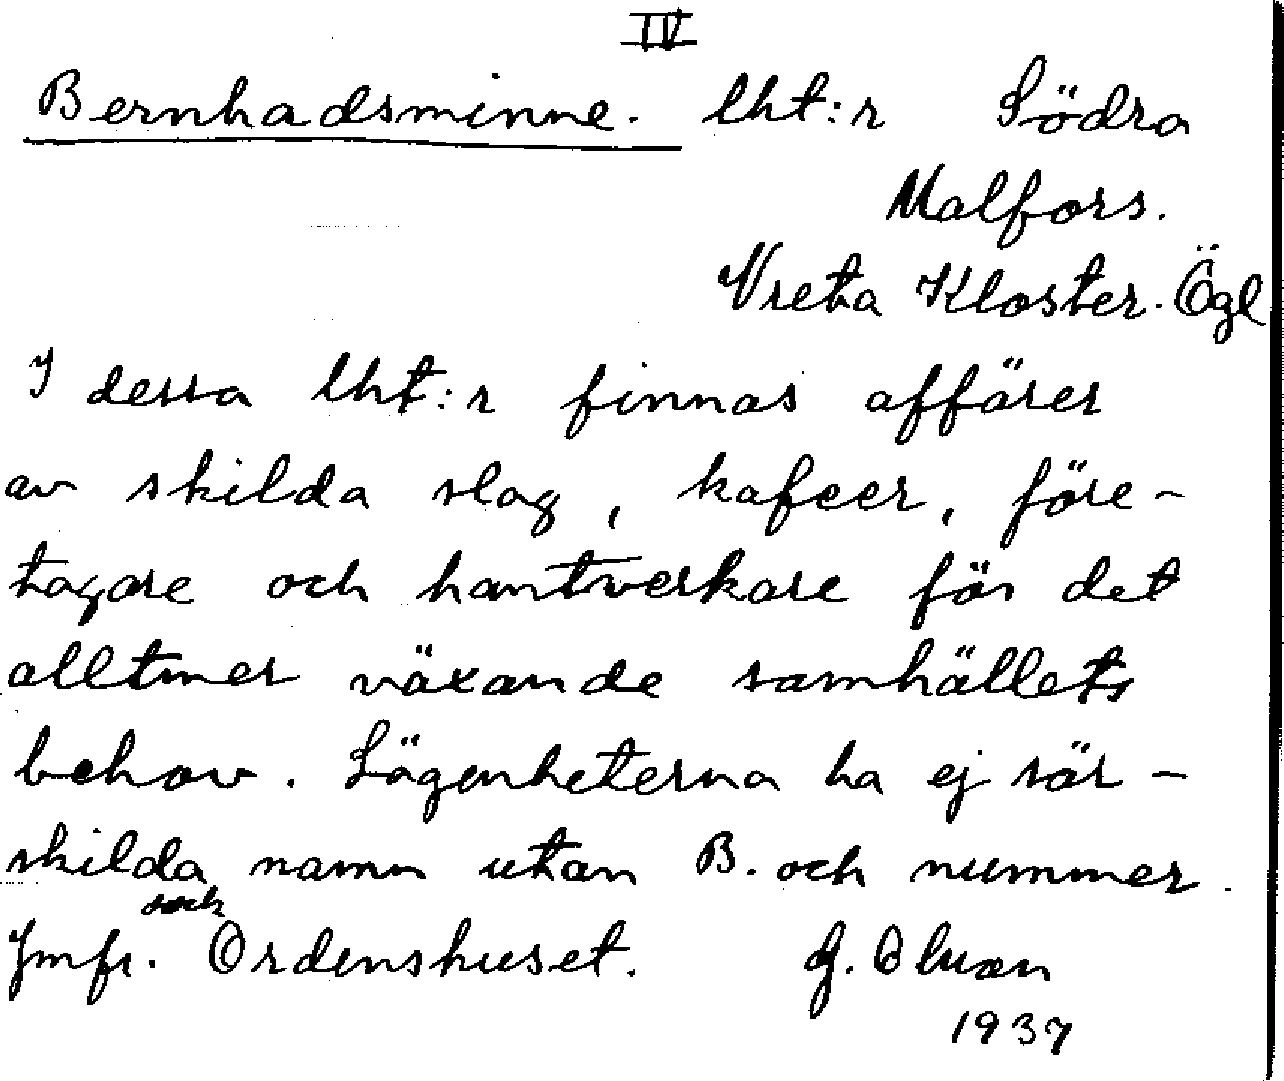 IV
Bernhadsminne. lht:r Södra
Malfors.
Vreta Kloster. Ögl
I dessa lht:r finnas affärer
av skilda slag, kafeer, före-
tagare och hantverkare för det
alltmer växande samhällets
behov. Lägenheterna ha ej sär-
skilda namn utan B. och nummer.
Jmfr. och Ordenshuset. G. Olsson
1937